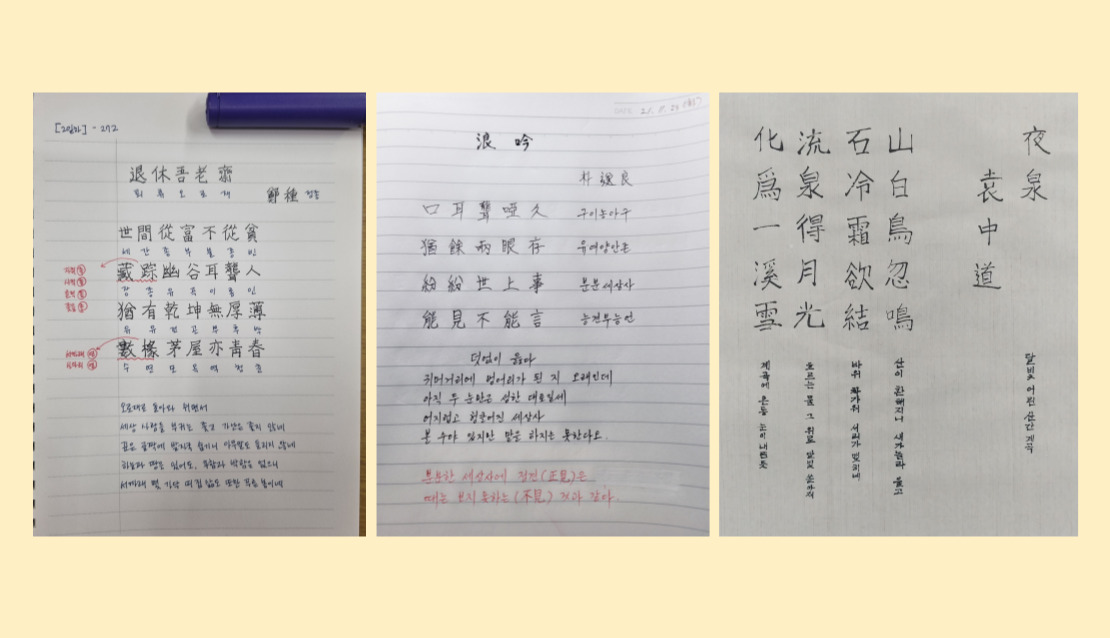 退休吾老齋
퇴 휴 오 로 재
鄭種 정종
世間從富不從貧
藏踪幽谷耳聾人
장 종 유 곡 이 롱 인
猶有乾坤無厚薄
유 유 건 곤 무 후 박
數椽茅屋亦青春
수 연 모 옥 역 청 춘
오로재로 돌아와 쉬면서
세상 사람들 부귀는 좇고 가난은 좇지 않네
깊은 골짝에 발자국 숨기니 아무말도 들리지 않네
하늘과 땅은 있어도, 후함과 박함은 없으니
서까래 몇 가닥 띠집 또한 푸른 봄이네
浪吟
朴遂良
口耳聾啞久 구이농아구
猶餘兩眼存 유여양안존
紛紛世上事 분분세상사
能見不能言 능견부능언
덧없이 읊다
귀머거리에 벙어리가 된 지 오래인데
아직 두 눈만은 성한 대로일세
어지럽고 헝클어진 세상사
본 수야 있지만 말은 하지는 못한다오.
분분한 세상사에 정견(正見)은
때론 보지 못하는(不見) 것과 같다.
夜泉
袁中道
山白鳥忽鳴
石冷霜欲結
流泉得月光
化爲一溪雪
달빛 어린 산간 계곡
산이 환해지니 새가 놀라 울고
바위 차가워 서리가 맺히네
흐르는 물 그 위로 달빛 쏟아져
계곡에 온통 눈이 내린 듯